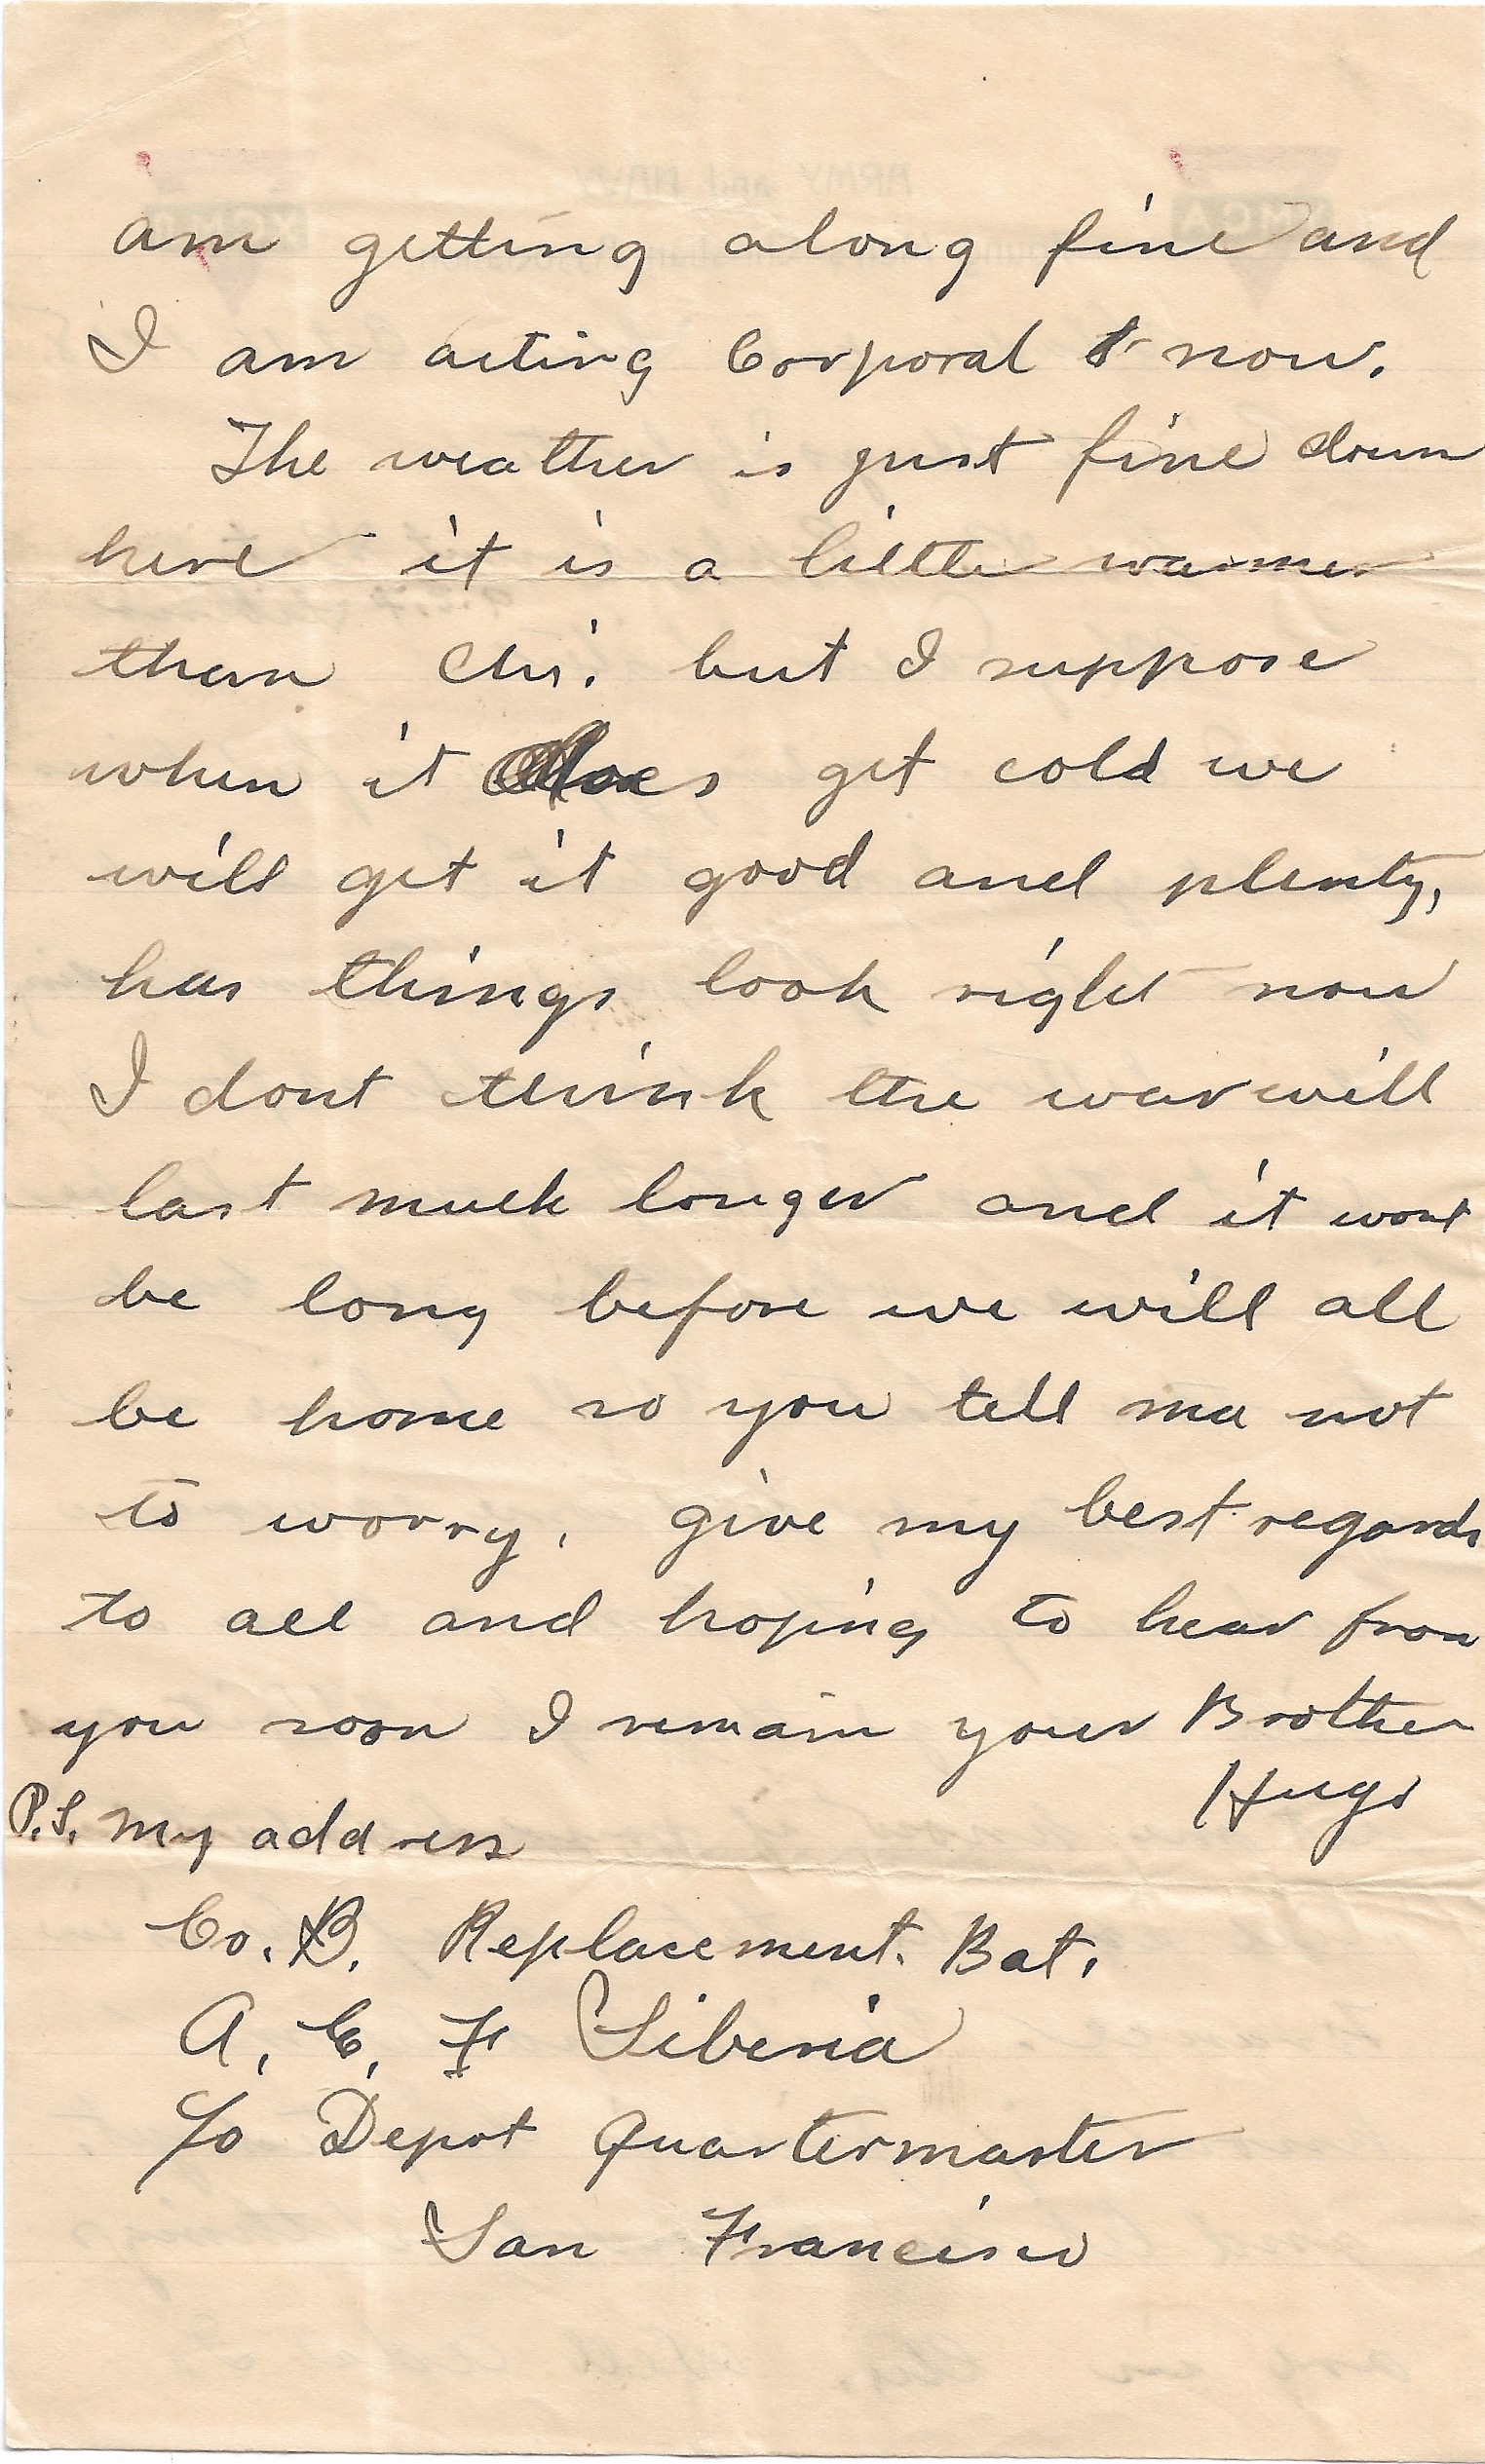 am getting along fine and
I am acting Corporal now.
The weather is just fine down
here it is a little warmer
than Chi. but I suppose
when it does get cold we
will get it good and plenty,
has things look right now
I dont think the war will
last much longer and it wont
be long before we will all
be home so you tell ma not
to worry. give my best regards
to all and hoping to hear from
you soon I remain your Brother
Hugo
P.S. my address
Co. B. Replacement. Bat.
A. E. F Siberia
c/o Depot Quartermaster
San Francisco